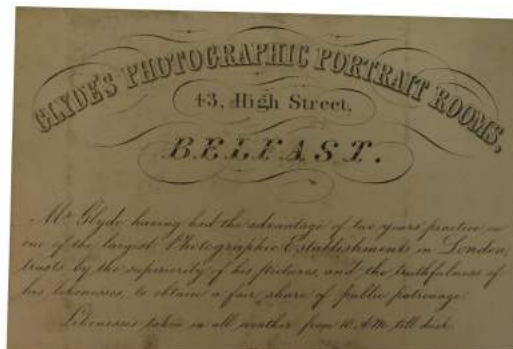 GLYDE'S PHOTOGRAPHIC PORTRAIT ROOMS,
43, High Street,
BELFAST.
Mr. Glyde having had the advantage of two years practice in
one of the largest Photographic Establishments in London,
trusts by the superiority of his Pictures, and the truthfulness of
his likenesses, to obtain a fair share of public patronage.
Likenesses taken in all weather from 10 A.M. till dusk